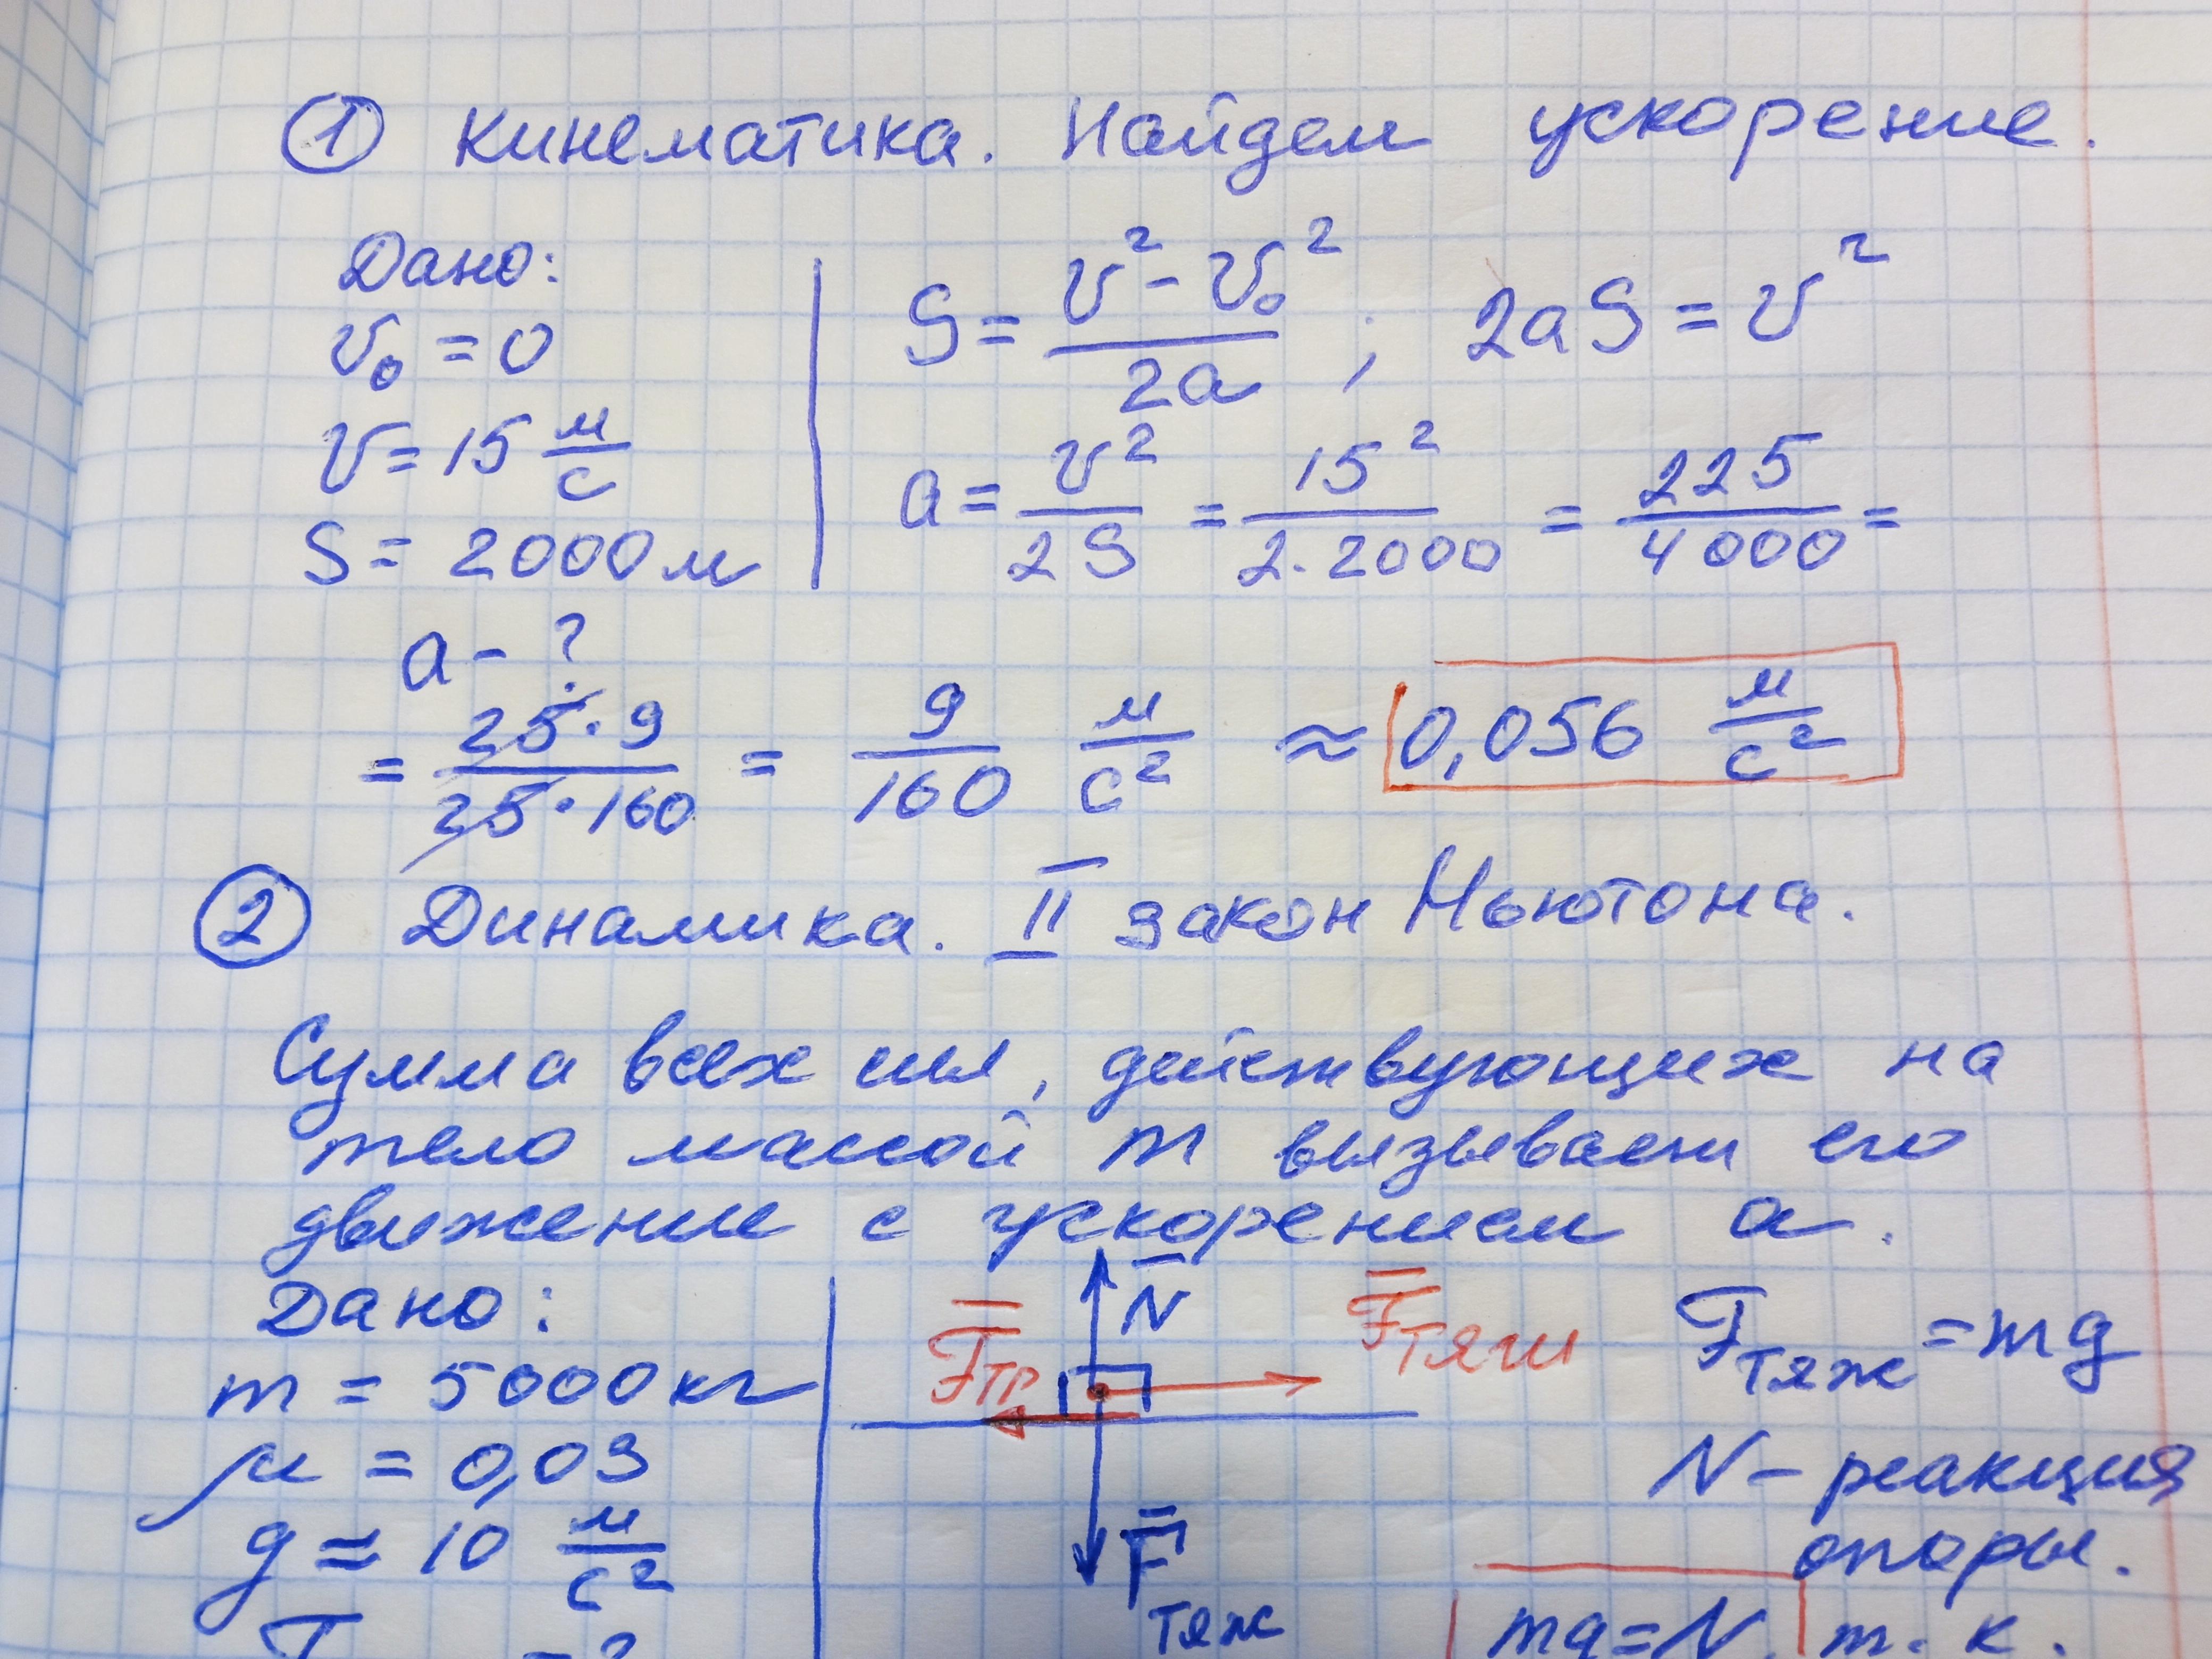 ① Кинематика. Найдем ускорение.
Дано:
v₀ = 0
v = 15 м/с
S = 2000 м
a - ?
S = (v² - v₀²)/2a ; 2aS = v²
a = v²/2S = 15²/(2·2000) = 225/4000 =
= (25·9)/(25·160) = 9/160 м/с² ≈ 0,056 м/с²
② Динамика. II закон Ньютона.
Сумма всех сил, действующих на
тело массой m вызывает его
движение с ускорением a.
Дано:
m = 5000 кг
μ = 0,03
g ≈ 10 м/с²
- ?
N̅
F̅тр
F̅тяги
F̅тяж
Fтяж = mg
N - реакция
опоры.
mg = N, т. к.